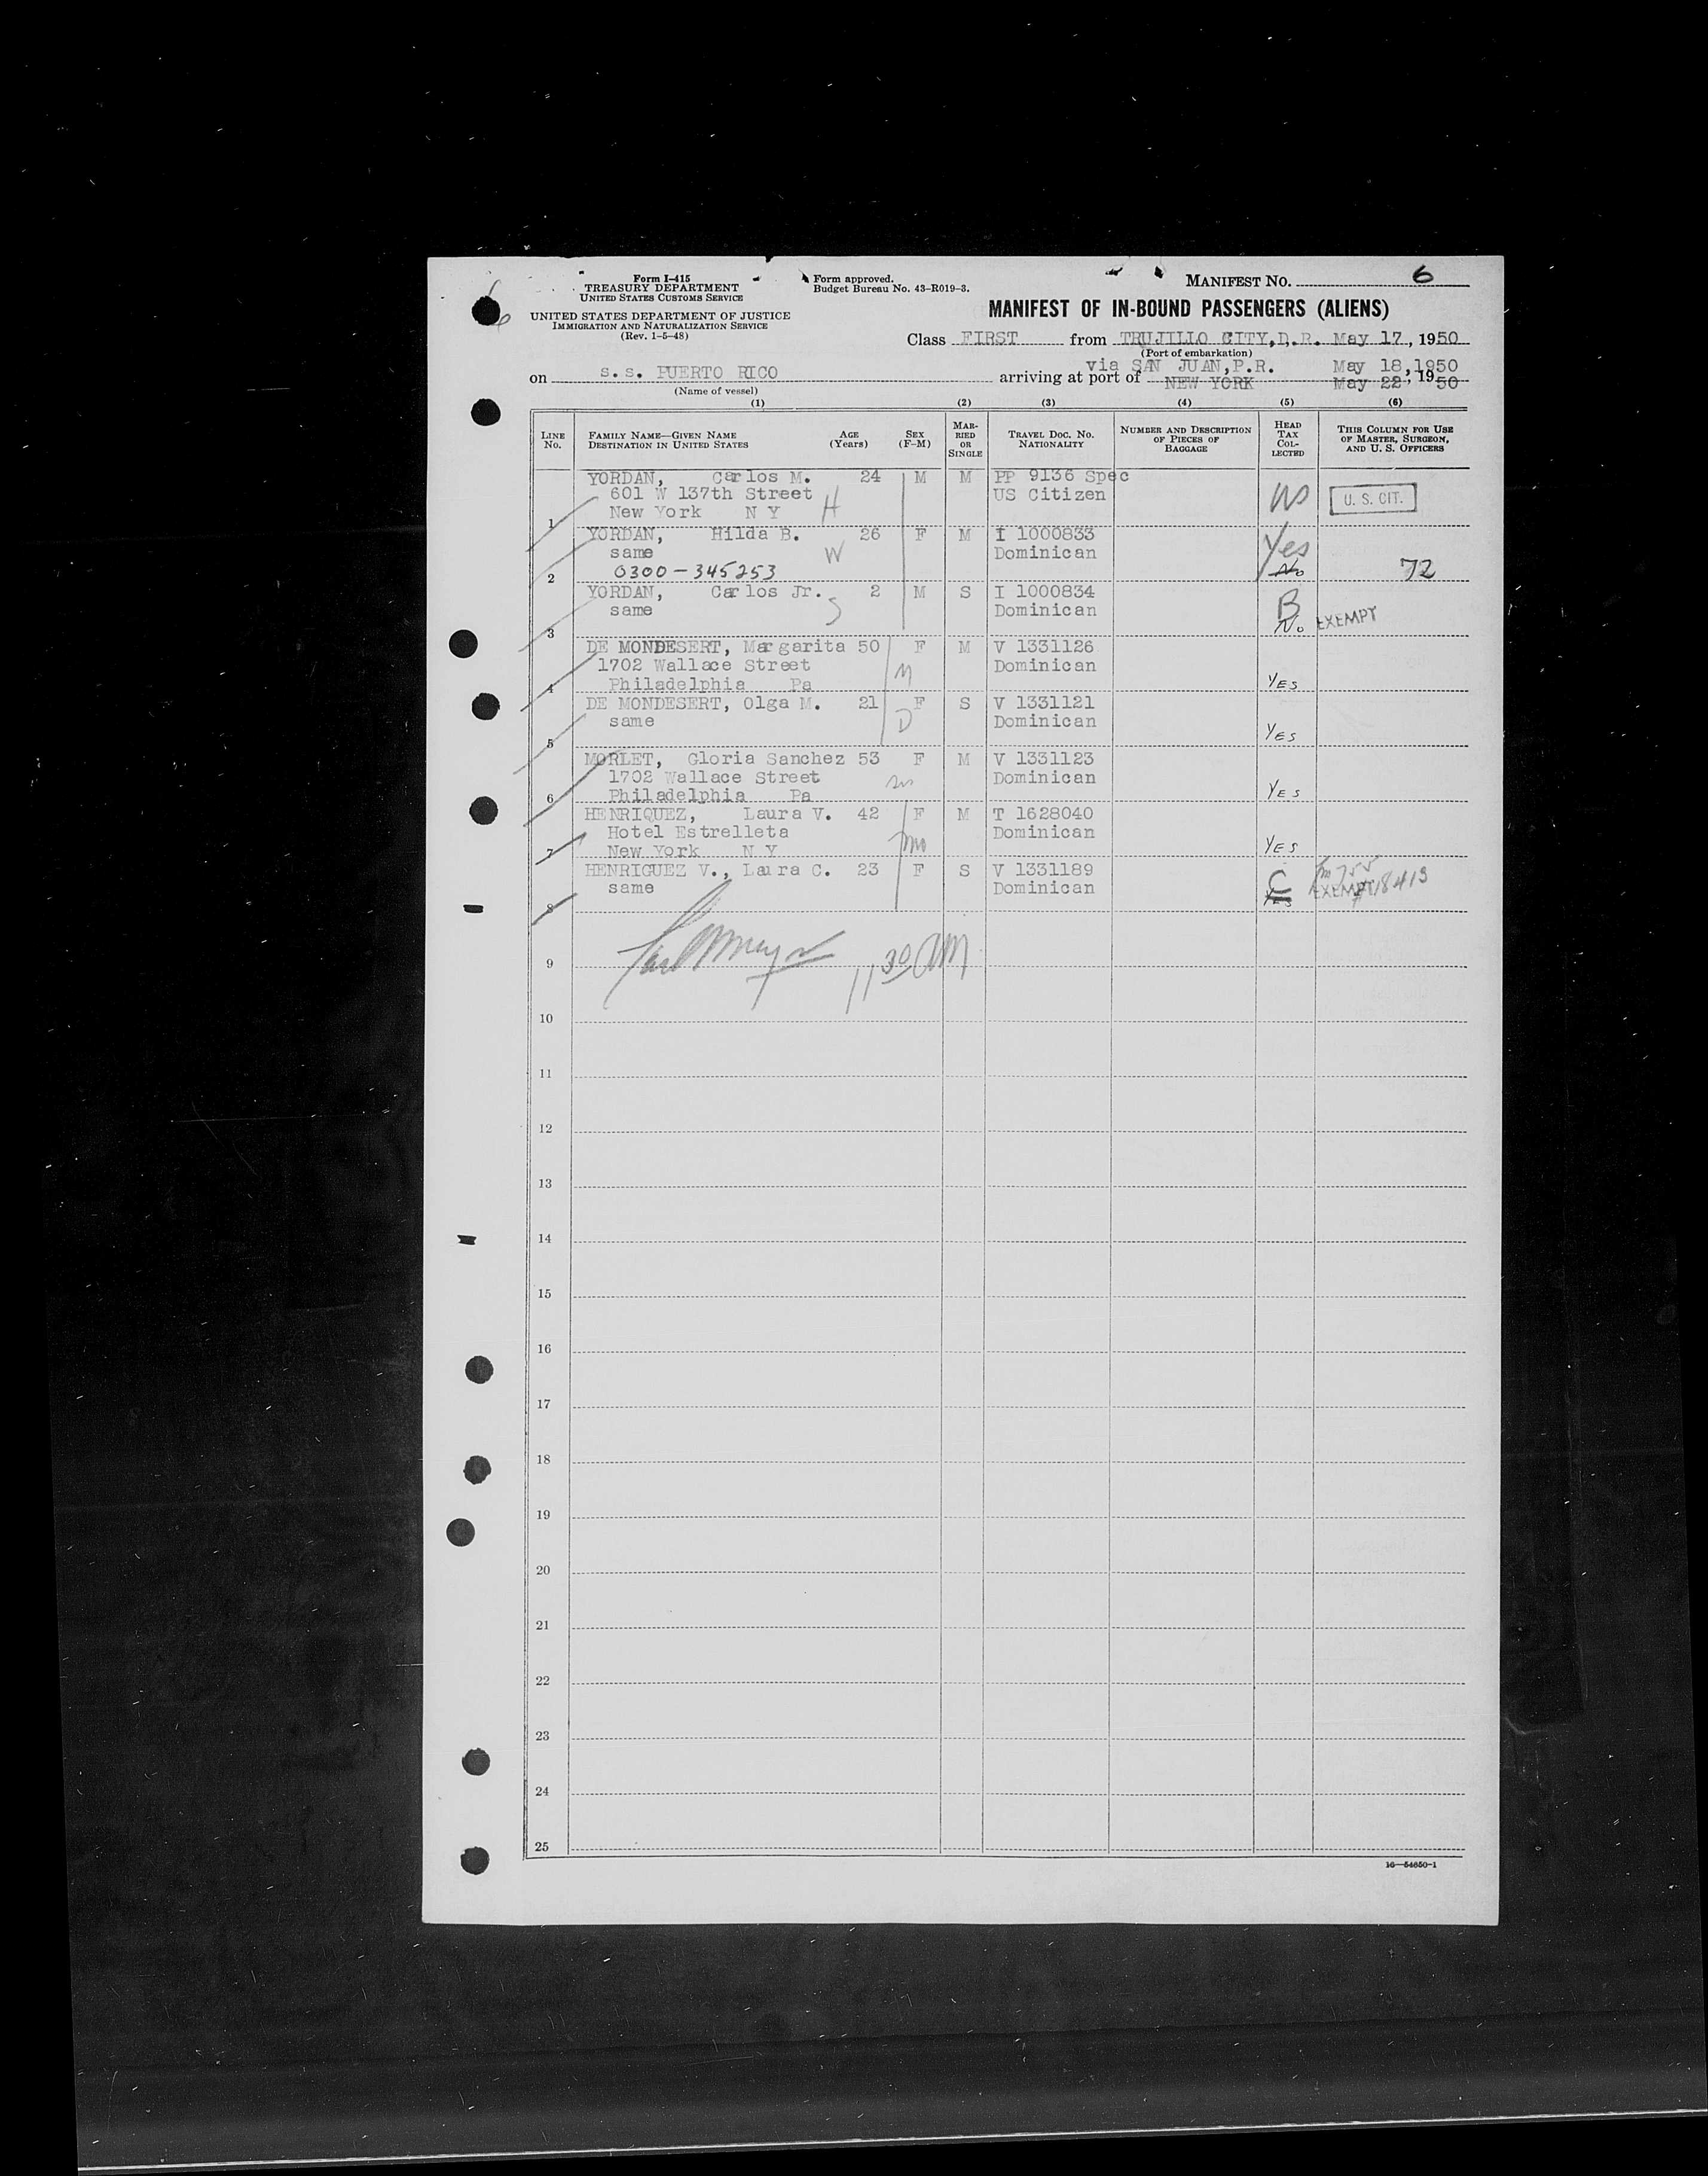 Form I-415
TREASURY DEPARTMENT
UNITED STATES CUSTOMS SERVICE
UNITED STATES DEPARTMENT OF JUSTICE
IMMIGRATION AND NATURALIZATION SERVICE
(Rev. 1-5-48)
Form approved.
Budget Bureau No. 43-R019-3.
MANIFEST NO. 6
MANIFEST OF IN-BOUND PASSENGERS (ALIENS)
Class FIRST from TRUJILLO CITY, D.R. May 17, 1950
(Port of embarkation)
via SAN JUAN, P.R. May 18, 1950
on s.s. PUERTO RICO arriving at port of NEW YORK May 22, 1950
(Name of vessel)
(1) (2) (3) (4) (5) (6)
LINE No. FAMILY NAME—GIVEN NAME DESTINATION IN UNITED STATES AGE (Years) SEX (F-M) MARRIED OR SINGLE TRAVEL DOC. NO. NATIONALITY NUMBER AND DESCRIPTION OF PIECES OF BAGGAGE HEAD TAX COLLECTED THIS COLUMN FOR USE OF MASTER, SURGEON, AND U. S. OFFICERS
YORDAN, Carlos M. 24 M M PP 9136 Spec
601 W 137th Street US Citizen U. S. CIT.
1 New York N Y H
YORDAN, Hilda B. 26 F M I 1000833
same W Dominican Yes
2 0300-345253 No 72
YORDAN, Carlos Jr. 2 M S I 1000834
same S Dominican B
3 No EXEMPT
DE MONDESERT, Margarita 50 F M V 1331126
1702 Wallace Street M Dominican
4 Philadelphia Pa YES
DE MONDESERT, Olga M. 21 F S V 1331121
same D Dominican
5 YES
MORLET, Gloria Sanchez 53 F M V 1331123
1702 Wallace Street Dominican
6 Philadelphia Pa YES
HENRIQUEZ, Laura V. 42 F M T 1628040
Hotel Estrelleta Dominican
7 New York N Y YES
HENRIGUEZ V., Laura C. 23 F S V 1331189
same Dominican C EXEMPT 18413
8 YES
9 11 30 AM
10
11
12
13
14
15
16
17
18
19
20
21
22
23
24
25
16—54650-1